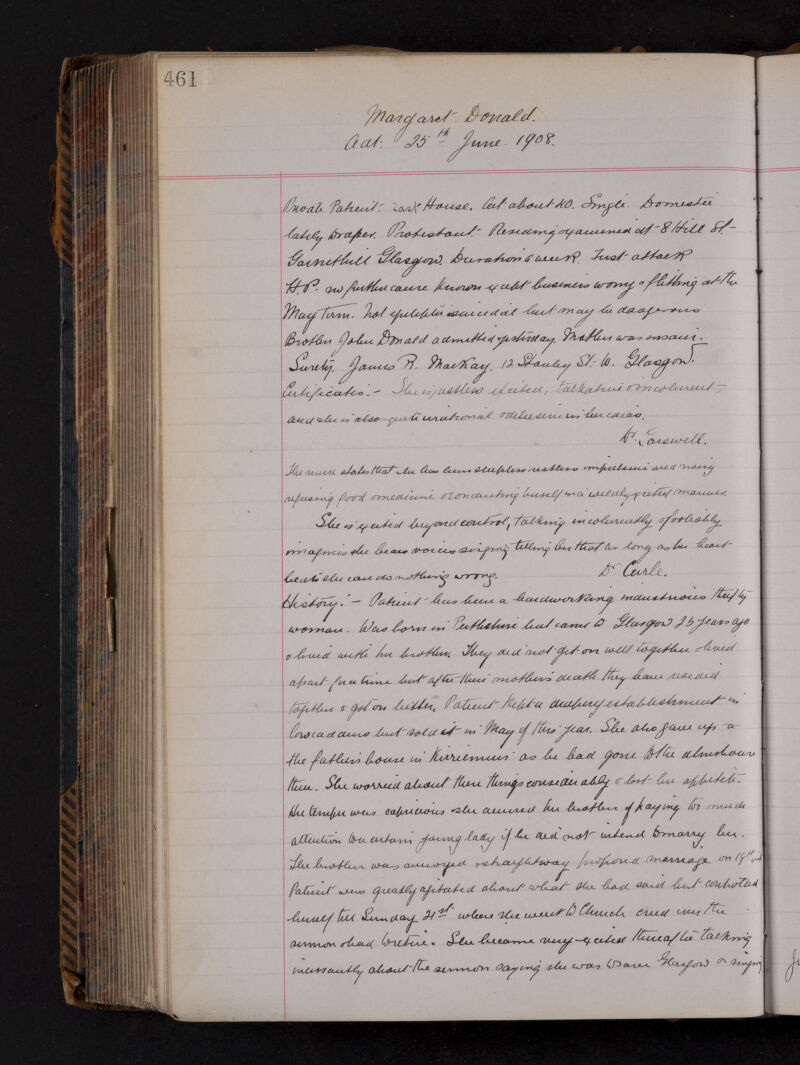 461
Margaret Donald.
Adt: 25th June. 1908.
Private Patient. East House. Aet about 40. Single. Domestic
lately Draper. Protestant. Residing & examined at 8 Hill St.
Garnethill Glasgow. Duration a week. First attack
H.P. no further cause known except business worry & flitting at the
May Term. Not epileptic or suicidal but may be dangerous
Brother John Donald admitted yesterday. Mother was insane.
Surety. James R. MacKay. 12 Stanley St. W. Glasgow.
Certificates:- She is restless excited, talkative & incoherent,
and she is also quite irrational & delusive in her ideas.
Dr. Carswell.
The nurse states that she has been sleepless restless impulsive and noisy
refusing food & medicine & conducting herself in a wildly excited manner.
She is excited beyond control, talking incoherently & foolishly
imagines she hears voices singing telling her that as long as her heart
beats she can do nothing wrong. Dr Carle.
History:- Patient has been a hardworking industrious thrifty
woman. Was born in Perthshire but came to Glasgow 25 years ago
& lived with her brother. They did not get on well together & lived
apart for a time but after their mother's death they have resided
together & got on better. Patient kept a drapery establishment in
Cowcaddens but sold it in May of this year. She also gave up
the father's house in Kirriemuir as he had gone to the almshouse
there. She worried about these things considerably & lost her appetite.
Her temper was capricious & she accused her brother of paying too much
attention to a certain young lady if he did not intend to marry her.
The brother was annoyed & straightway proposed marriage on 19th
Patient was greatly agitated about what she had said but controlled
herself till Sunday 21st when she went to Church cried over the
sermon & had to retire. She became very excited thereafter talking
incessantly about the sermon saying she was to save Glasgow & singing